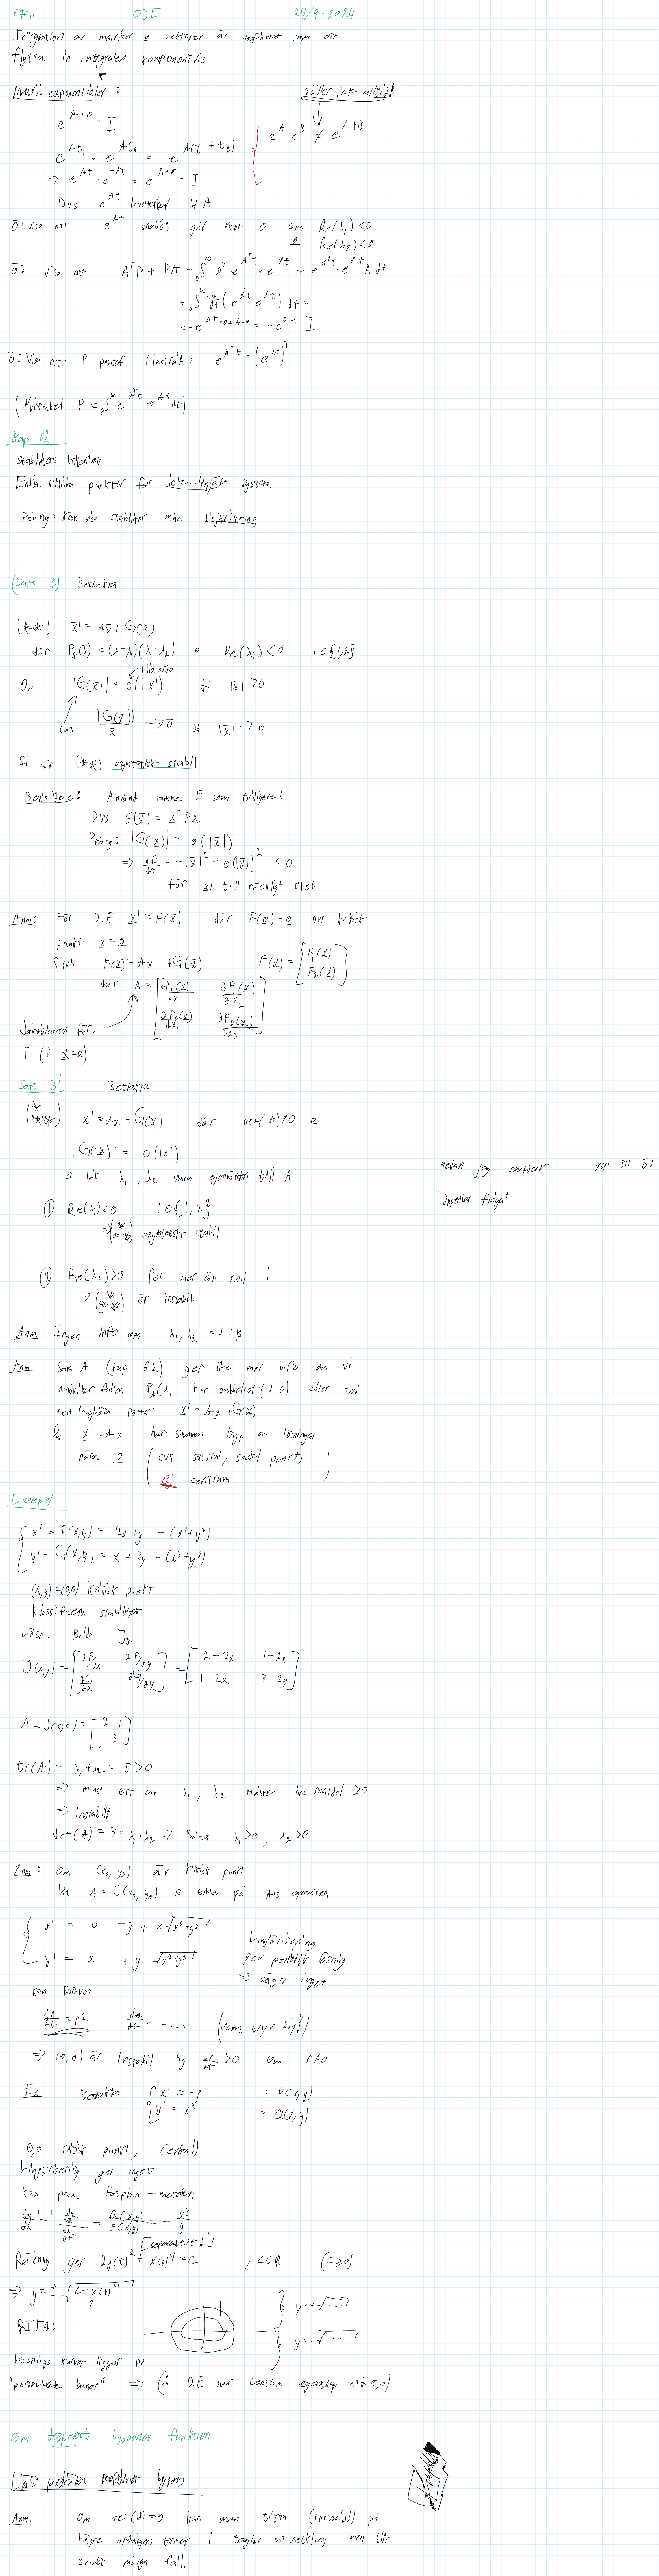 F#11 ODE 24/9-2024
Integration av matriser & vektorer är definierat som att
flytta in integralen komponentvis
Matris exponentialer: gäller inte alltid!
e^{A·0} = I
e^A e^B ≠ e^{A+B}
e^{At_1} · e^{At_2} = e^{A(t_1+t_2)}
=> e^{At} · e^{-At} = e^{A·0} = I
Dvs e^{At} inverterbar ∀ A
Ö: visa att e^{At} snabbt går mot 0 om Re(λ_1)<0
& Re(λ_2)<0
Ö: Visa att A^T P + PA = ∫_0^∞ A^T e^{A^T t} · e^{At} + e^{A^T t} · e^{At} A dt
= ∫_0^∞ d/dt (e^{A^T t} e^{At}) dt =
= -e^{A^T·0+A·0} = -e^0 = -I
Ö: Visa att P posdef (ledtråd: e^{A^T t} = (e^{At})^T
(Mirakel P = ∫_0^∞ e^{A^T t} e^{At} dt)
Kap 62
Stabilitets kriteriet
Enkla kritiska punkter för icke-linjära system.
Poäng: Kan visa stabilitet mha linjärisering
(Sats B) Betrakta
(**) x̄' = Ax̄ + G(x̄)
där P_A(λ) = (λ-λ_1)(λ-λ_2) & Re(λ_i)<0 i∈{1,2}
lilla ordo
Om |G(x̄)| = o(|x̄|) då |x̄|→0
dvs |G(x̄)|/x̄ → 0̄ då |x̄|→0
Så är (**) asymptotiskt stabil
Bevisidee: Använt samma E som tidigare!
Dvs E(x̄) = x^T Px
Poäng: |G(x)| = o(|x̄|)
=> dE/dt = -|x̄|^2 + o(|x̄|)^2 < 0
för |x| tillräckligt litet
Anm: För D.E x' = F(x̄) där F(0)=0 dvs kritisk
punkt x=0
Skriv F(x) = Ax + G(x̄) F(x) = [F_1(x) F_2(x)]
där A = [∂F_1(x)/∂x_1 ∂F_1(x)/∂x_2
∂F_2(x)/∂x_1 ∂F_2(x)/∂x_2]
Jakobianen för
F (i x=0)
Sats B' Betrakta
(***) x' = Ax + G(x) där det(A)≠0 &
|G(x)| = o(|x|)
& låt λ_1, λ_2 vara egenvärden till A
medan jag smittar ger till ö:
"öppenbar fråga"
① Re(λ_i)<0 i∈{1,2}
=> (***) asymptotiskt stabil
② Re(λ_i)>0 för mer än noll i
=> (***) är instabil.
Anm Ingen info om λ_1, λ_2 = ±iβ
Anm. Sats A (kap 62) ger lite mer info om vi
undviker fallen P_A(λ) har dubbelrot (i 0) eller två
rent imaginära rötter. x' = Ax + G(x)
& x' = Ax har samma typ av lösningar
nära 0 (dvs spiral, sadel punkt,
Ej centrum)
Exempel
x' = F(x,y) = 2x+y - (x²+y²)
y' = G(x,y) = x + 3y - (x²+y²)
(x,y) = (0,0) kritisk punkt
Klassificera stabilitet
Lösn: Bilda J_F
J(x,y) = [∂F/∂x ∂F/∂y = [2-2x 1-2x
∂G/∂x ∂G/∂y] 1-2x 3-2y]
A = J(0,0) = [2 1
1 3]
tr(A) = λ_1+λ_2 = 5 > 0
=> minst ett av λ_1, λ_2 måste ha realdel >0
=> instabilt
det(A) = 5 = λ_1·λ_2 => Båda λ_1>0, λ_2>0
Anm: Om (x_0, y_0) är kritisk punkt
låt A = J(x_0, y_0) & titta på A:s egenvärden.
x' = 0 -y + x√(x²+y²)
Linjärisering
ger periodisk lösning
y' = x + y √(x²+y²)
=> säger inget
Kan prova
dr/dt = r² dθ/dt = .... (vem bryr sig?)
=> (0,0) är instabil ty dr/dt >0 om r≠0
Ex Betrakta x' = -y = P(x,y)
y' = x³ = Q(x,y)
0,0 kritisk punkt, (enda!)
Linjärisering ger inget
Kan prova fasplan-metoden
dy/dx "=" (dy/dt)/(dx/dt) = Q(x,y)/P(x,y) = -x³/y
[separabelt!]
Räkning ger 2y(t)² + x(t)^4 = C , C∈R (C≥0)
=> y = ±√((C-x(t)^4)/2)
y=+√....
RITA:
y=-√....
Lösnings kurvor ligger på
"periodiska banor" => (ö: D.E har centrum egenskap vid 0,0)
Om desperat Lyapunov funktion
Läs polära koordinat byten
Anm. Om det(A)=0 kan man titta (i princip) på
högre ordningens termer i taylor utveckling men blir
snabbt många fall.